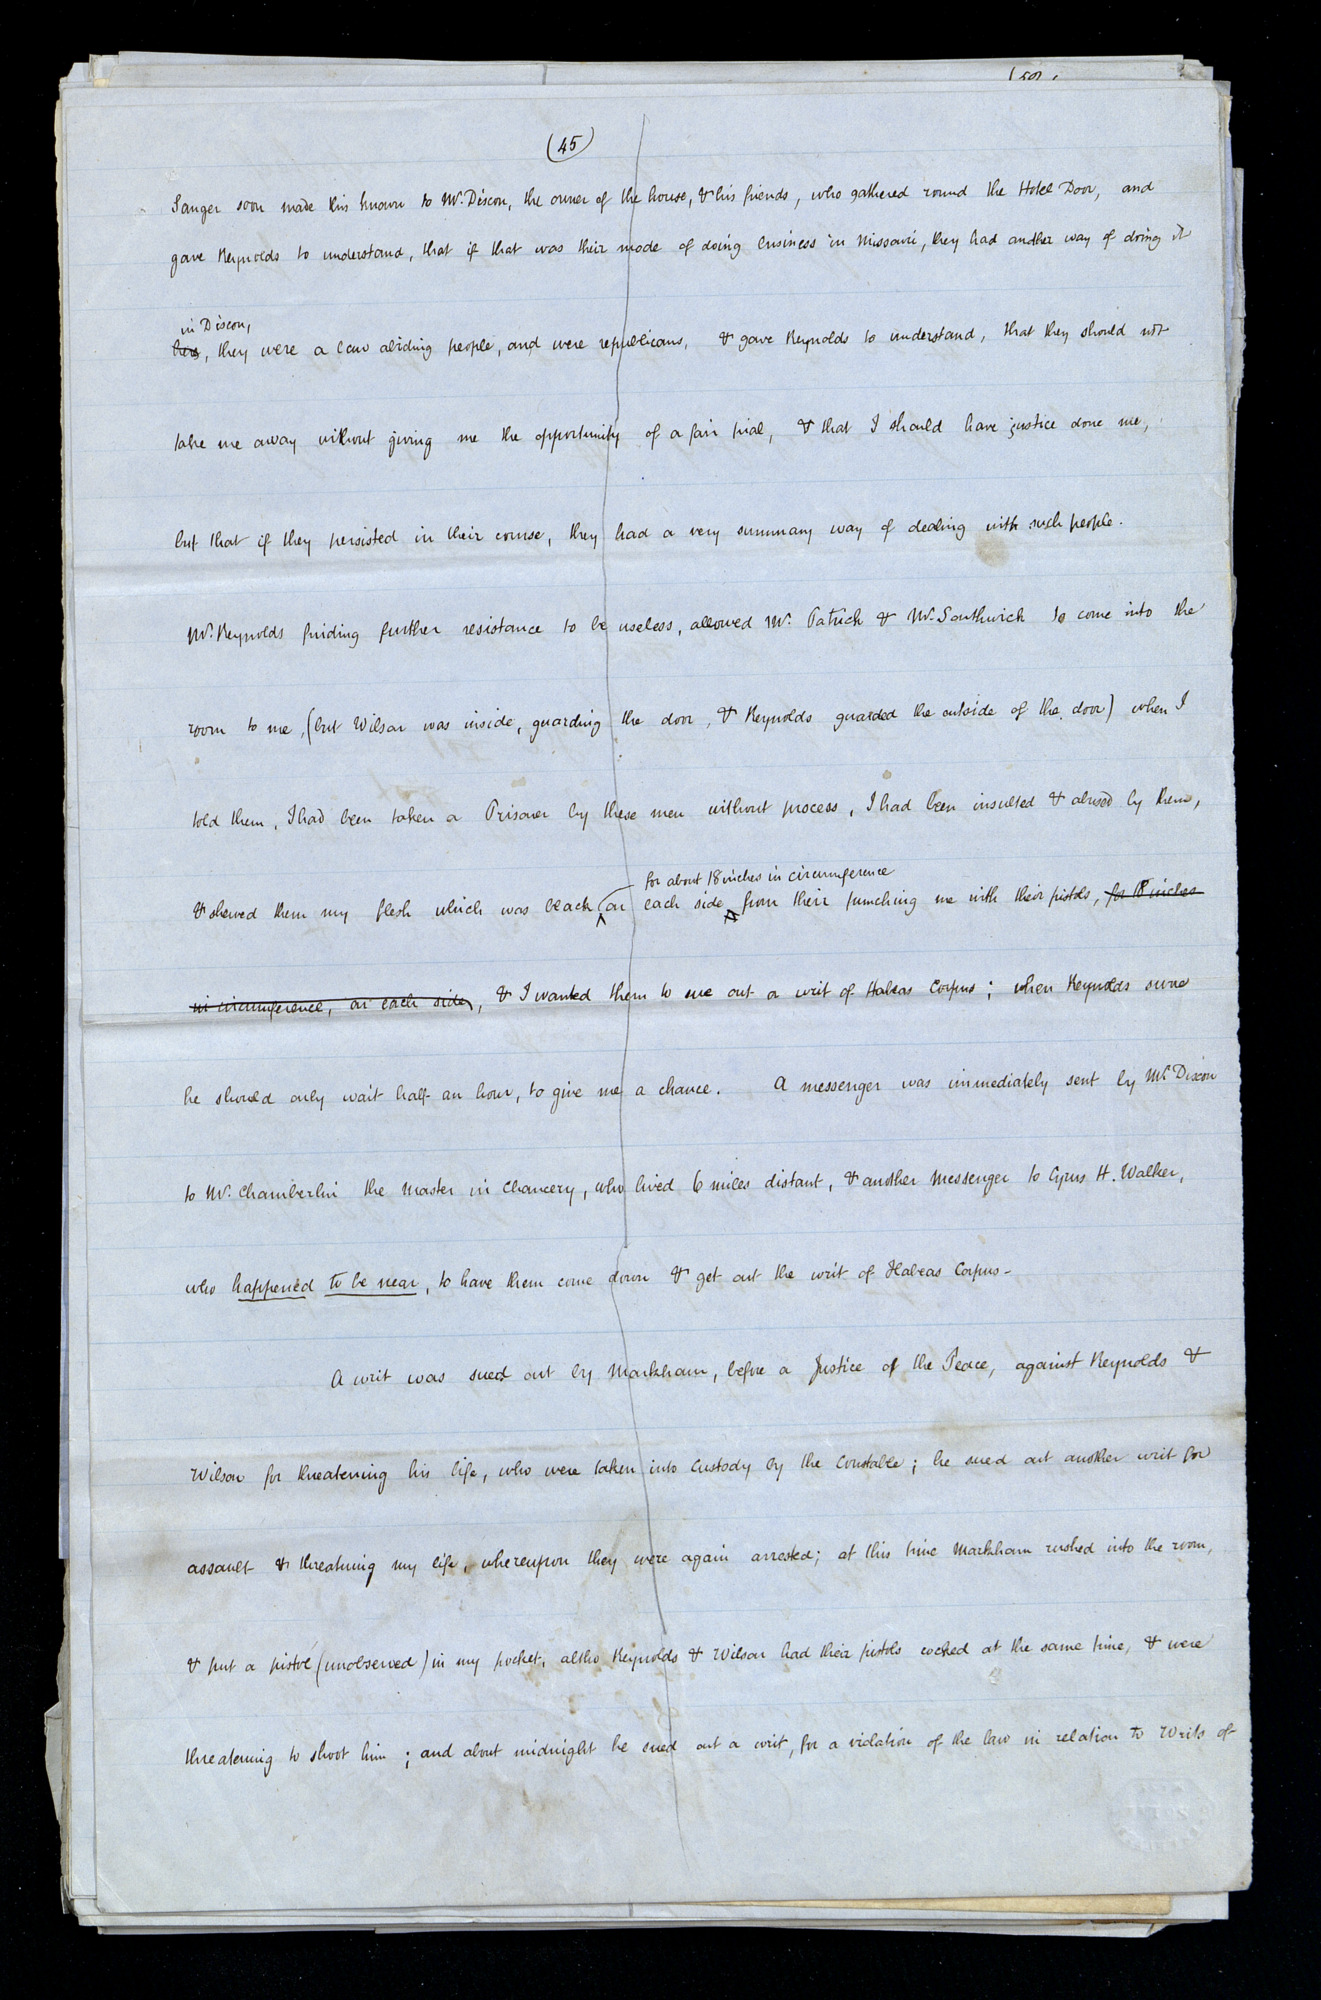 (45)
Sanger soon made this known to Mr. Dixon, the owner of the house, & his friends, who gathered round the Hotel Door, and
gave Reynolds to understand, that if that was their mode of doing business in Missouri, they had another way of doing it
in Dixon,
here, they were a law abiding people, and were republicans, & gave Reynolds to understand, that they should not
take me away without giving me the opportunity of a fair trial, & that I should have justice done me,
but that if they persisted in their course, they had a very summary way of dealing with such people.
Mr. Reynolds finding further resistance to be useless, allowed Mr. Patrick & Mr. Southwick to come into the
room to me, (but Wilson was inside, guarding the door, & Reynolds guarded the outside of the door) when I
told them, I had been taken a Prisoner by these men without process, I had been insulted & abused by them,
for about 18 inches in circumference
& shewed them my flesh which was black, on each side from their punching me with their pistols, for 18 inches
in circumference, on each side, & I wanted them to sue out a writ of Habeas Corpus; when Reynolds swore
he should only wait half an hour, to give me a chance. A messenger was immediately sent by Mr. Dixon
to Mr. Chamberlin the Master in Chancery, who lived 6 miles distant, & another Messenger to Cyrus H. Walker,
who happened to be near, to have them come down & get out the writ of Habeas Corpus-
A writ was sued out by Markham, before a Justice of the Peace, against Reynolds &
Wilson for threatening his life, who were taken into custody by the Constable; he sued out another writ for
assault & threatning my life, whereupon they were again arrested; at this time Markham rushed into the room,
& put a pistol (unobserved) in my pocket, altho Reynolds & Wilson had their pistols cocked at the same time, & were
threatening to shoot him; and about midnight he sued out a writ, for a violation of the law in relation to Writs of